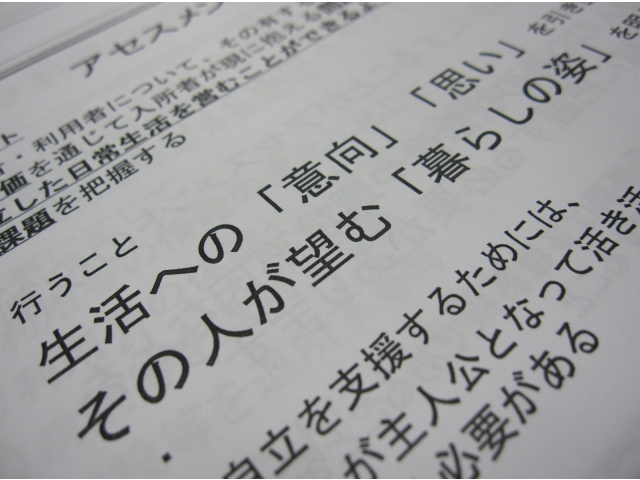 アセスメン
ト
・利用者について、その有する
価を通じて入所者が現に抱える問
立した日常生活を営むことができるよ
課題を把握する
行うこと
生活への「意向」「思い」を引き
その人が望む「暮らしの姿」を
・
自立を支援するためには、
が主人公となって活き活
必要がある